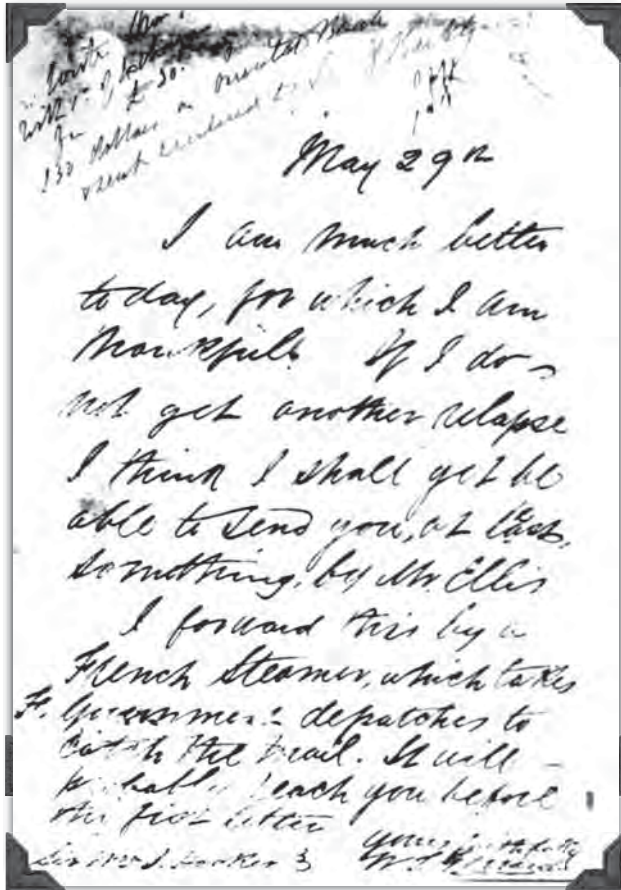 £ 50.
130 dollars on
May 29th
I am much better
today, for which I am
thankful. If I do
not get another relapse
I think I shall yet be
able to send you, at least,
something, by Mr. Ellis
I forward this by a
French Steamer, which takes
F. Government depatches to
catch the mail. It will
probably reach you before
the first letter
yours faithfully
Sir Wm J. Hooker